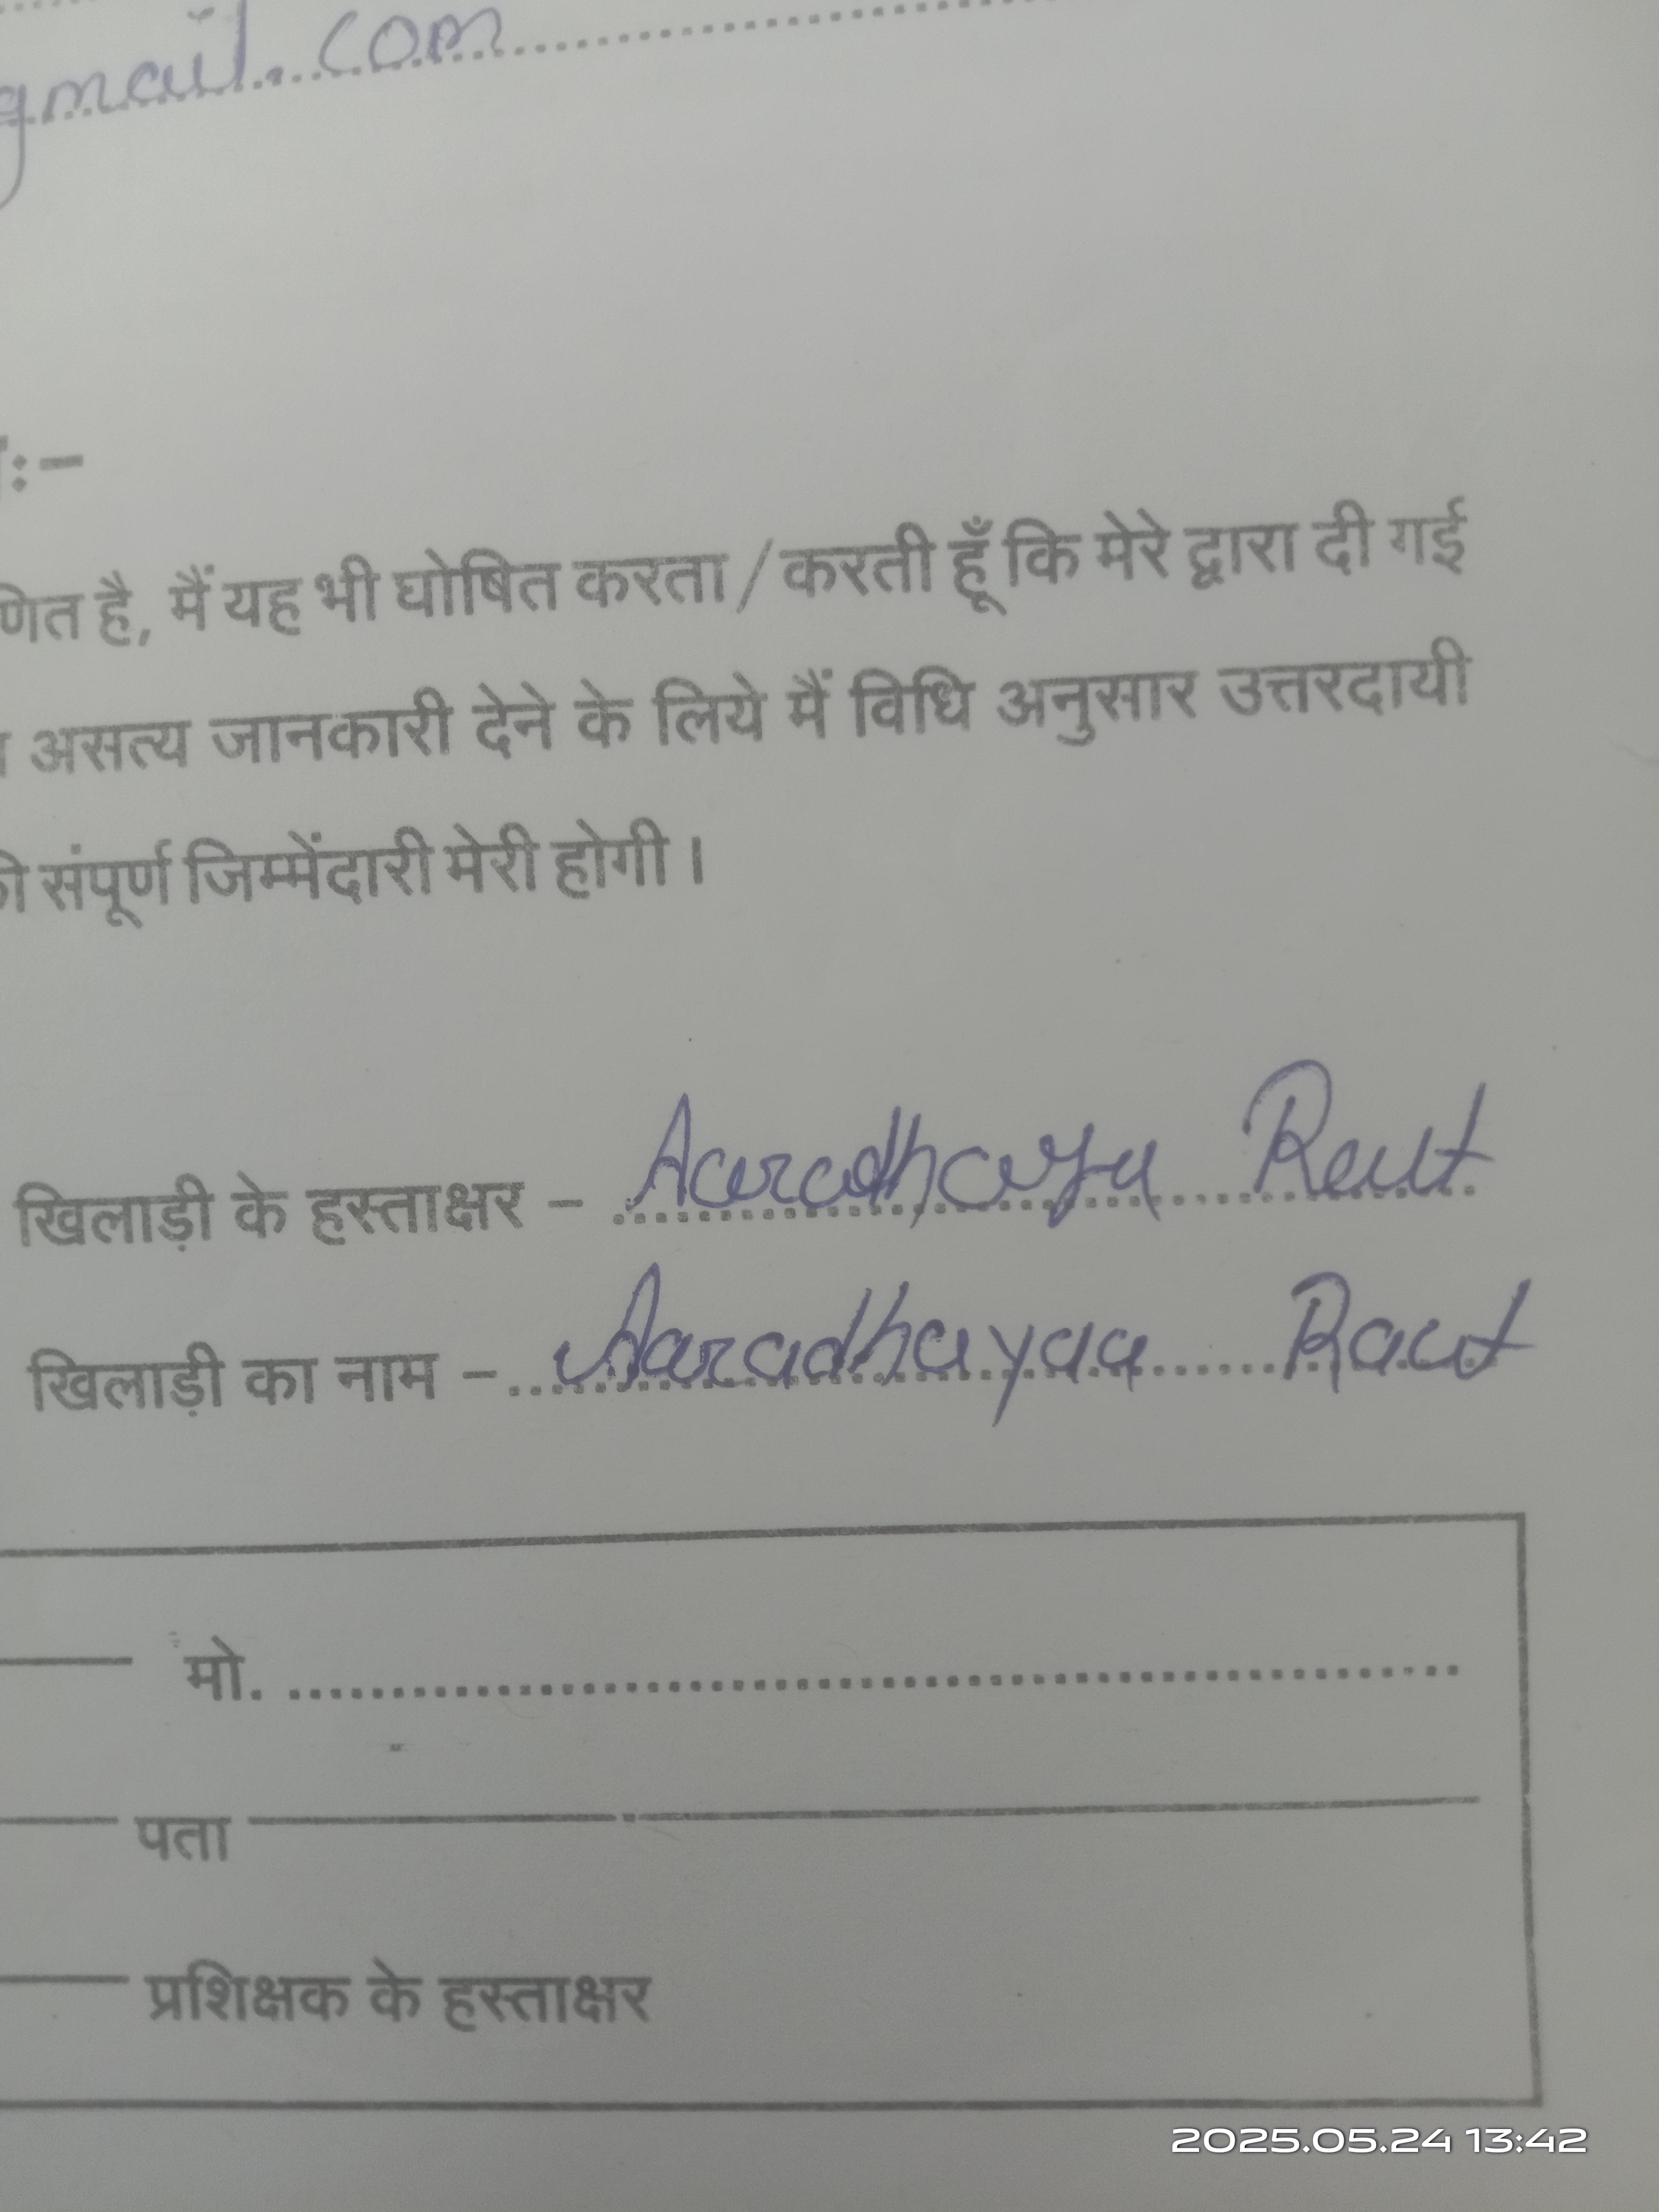 gmail.com
:-
है, मैं यह भी घोषित करता / करती हूँ कि मेरे द्वारा दी गई
असत्य जानकारी देने के लिये मैं विधि अनुसार उत्तरदायी
संपूर्ण जिम्मेंदारी मेरी होगी।
खिलाड़ी के हस्ताक्षर - Aaradhaya Raut
खिलाड़ी का नाम - Aaradhayaa Raut
मो.
पता
प्रशिक्षक के हस्ताक्षर
2025.05.24 13:42